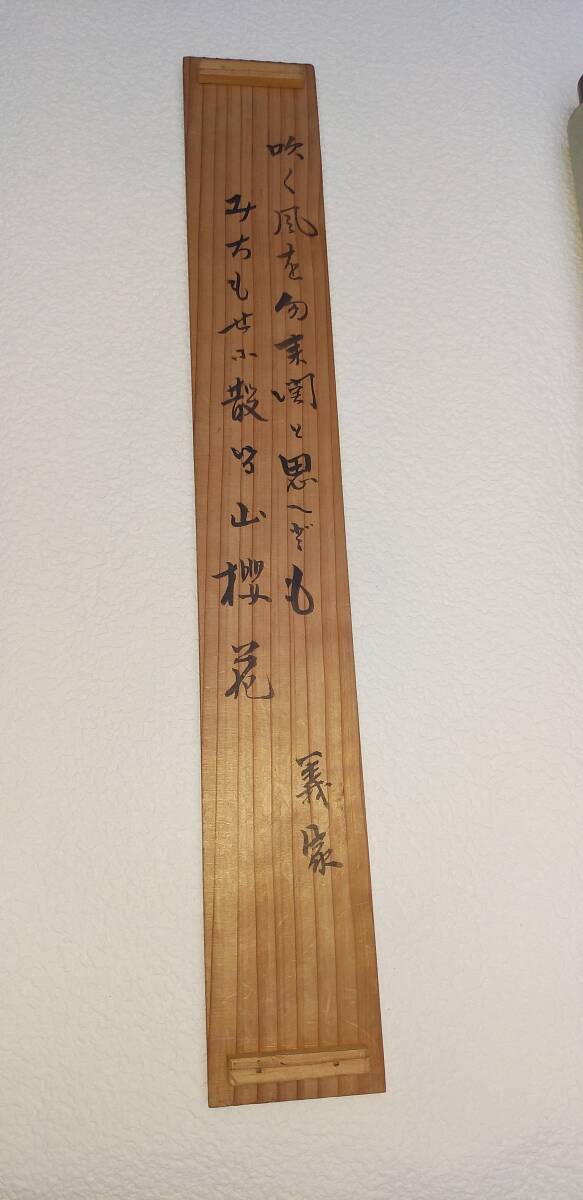 吹く風を勿来関と思へども
みちもせに散る山櫻花
義家